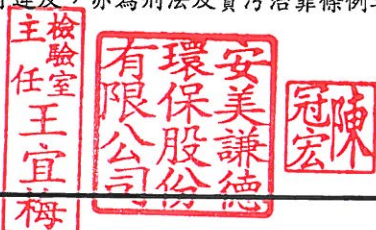 違反，亦為刑法及貪污治罪條例
檢驗室
主任
王宜梅
安美謙德
環保股份
有限公司
陳
冠宏